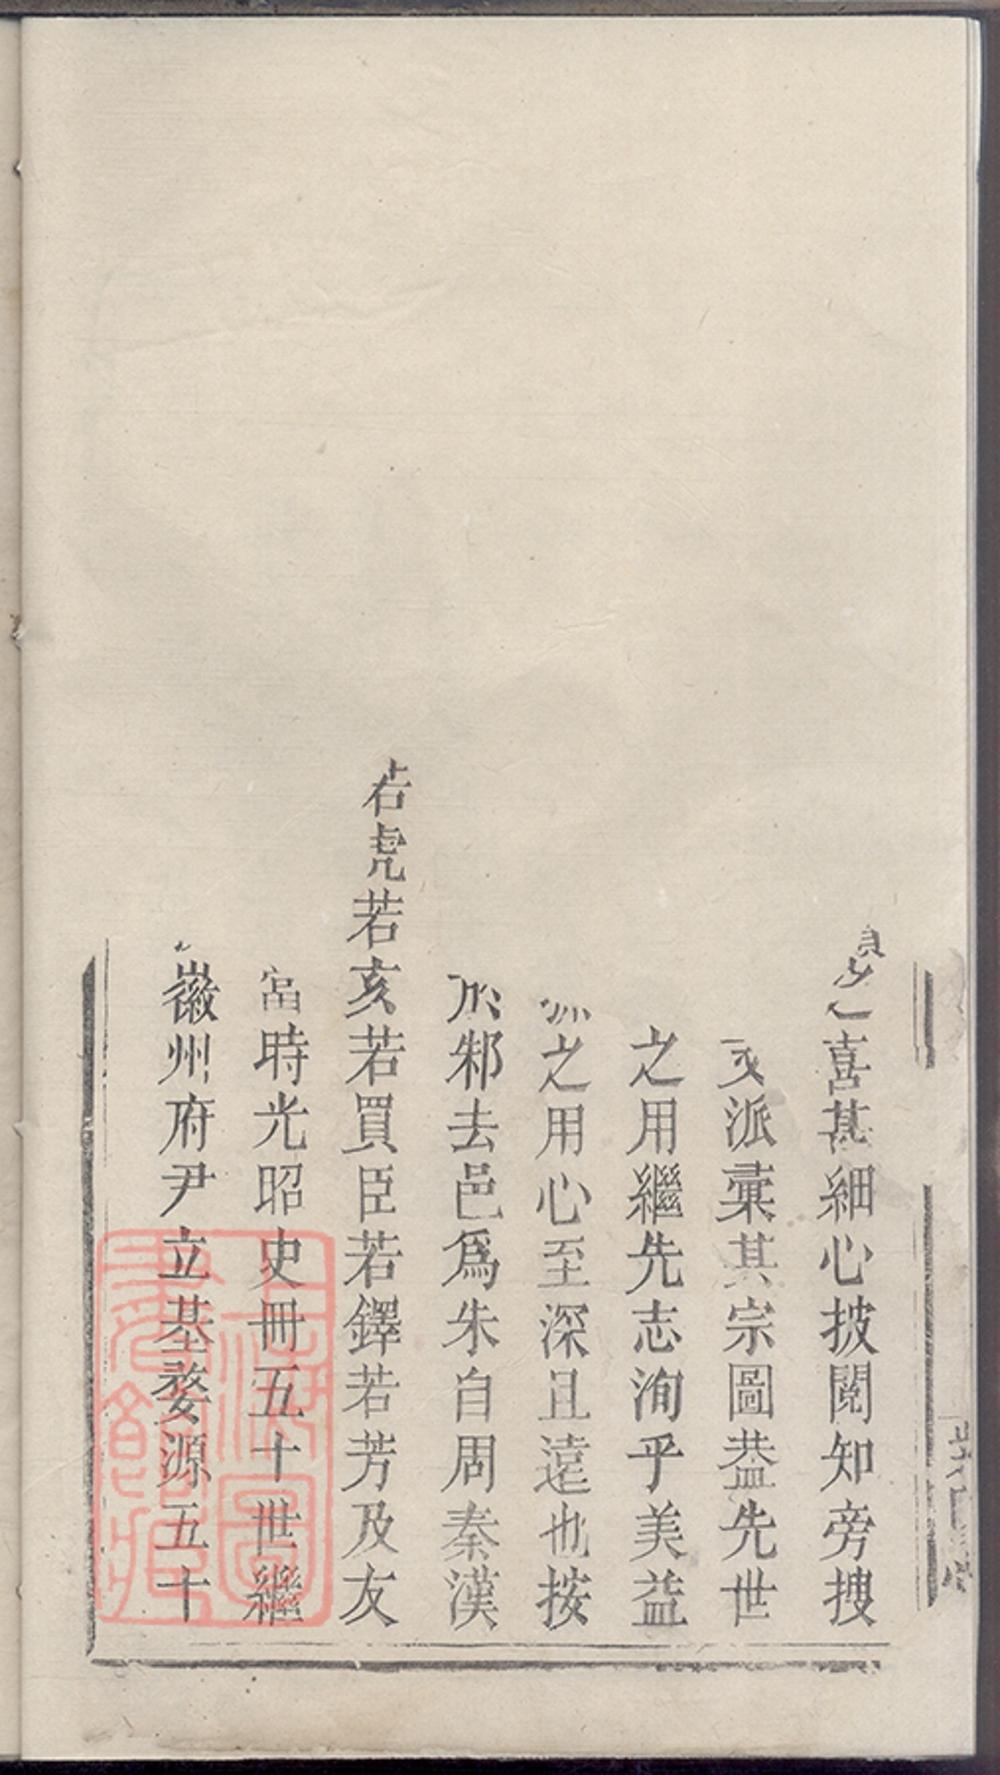 喜甚細心披閱知旁搜
派彙其宗圖葢先世
之用繼先志洵乎美益
之用心至深且遠也按
於邾去邑爲朱自周秦漢
若虎若亥若買臣若鐸若芳及友
當時光昭史冊五十世繼
徽州府尹立基婺源五十
上海圖書館藏